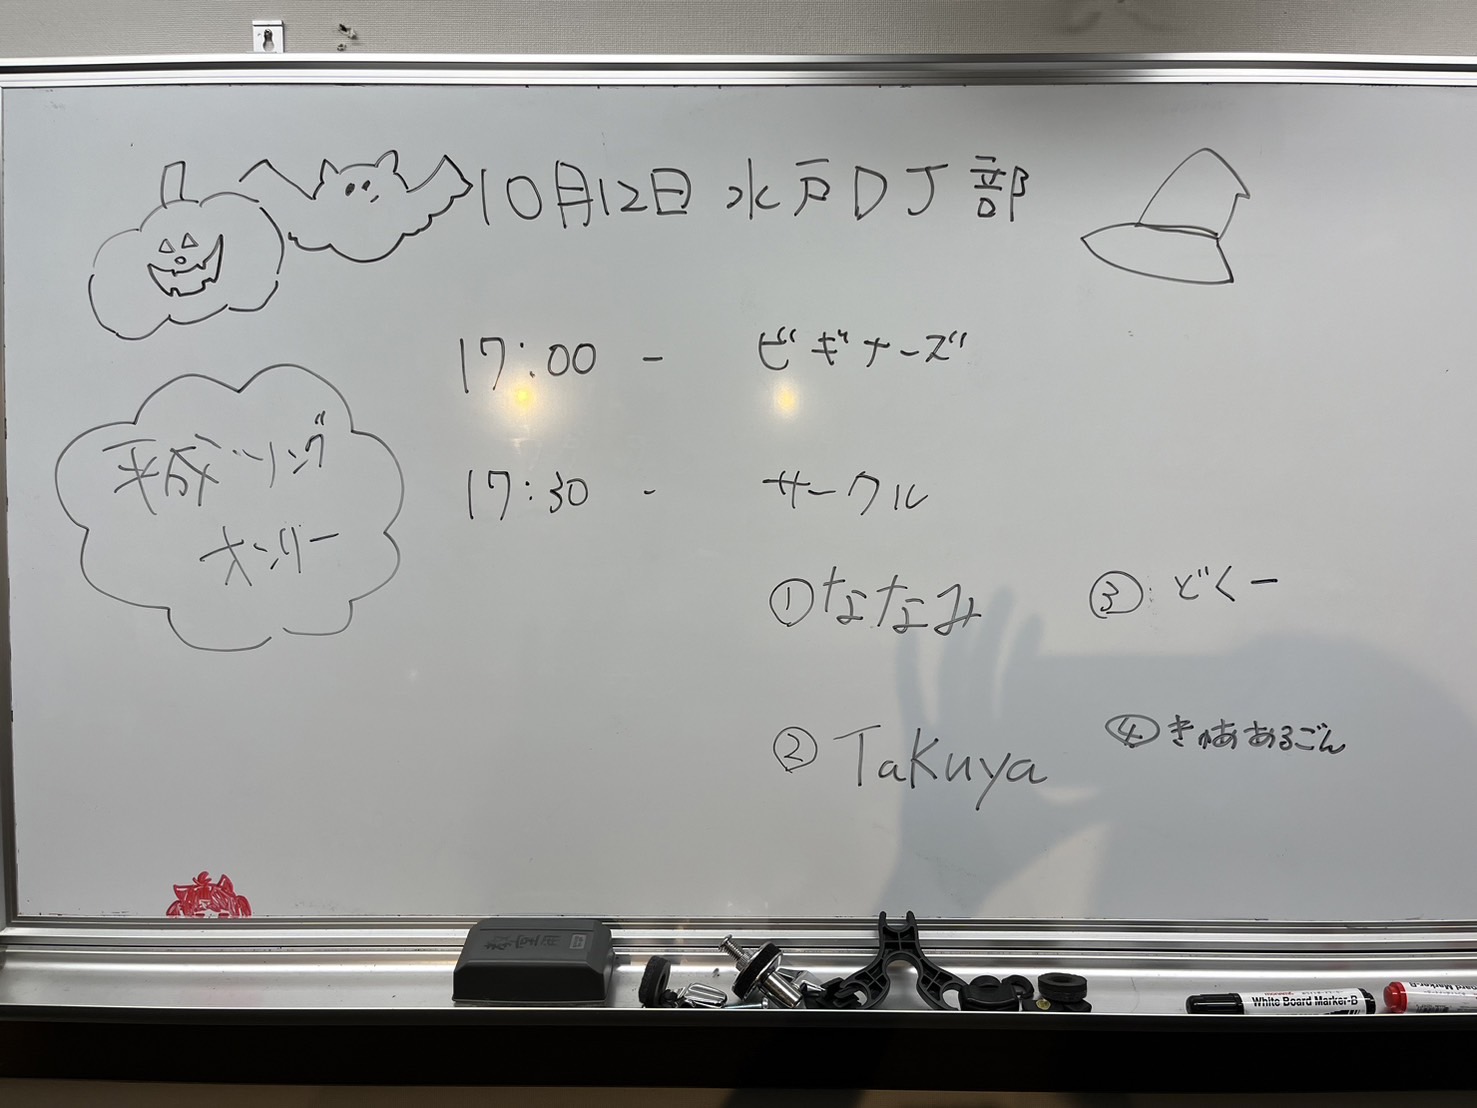 10月12日 水戸DJ部
17:00 - ビギナーズ
平成ソング
オンリー
17:30 - サークル
①ななみ
②Takuya
③どくー
④きゅああるごん
White Board Marker-B